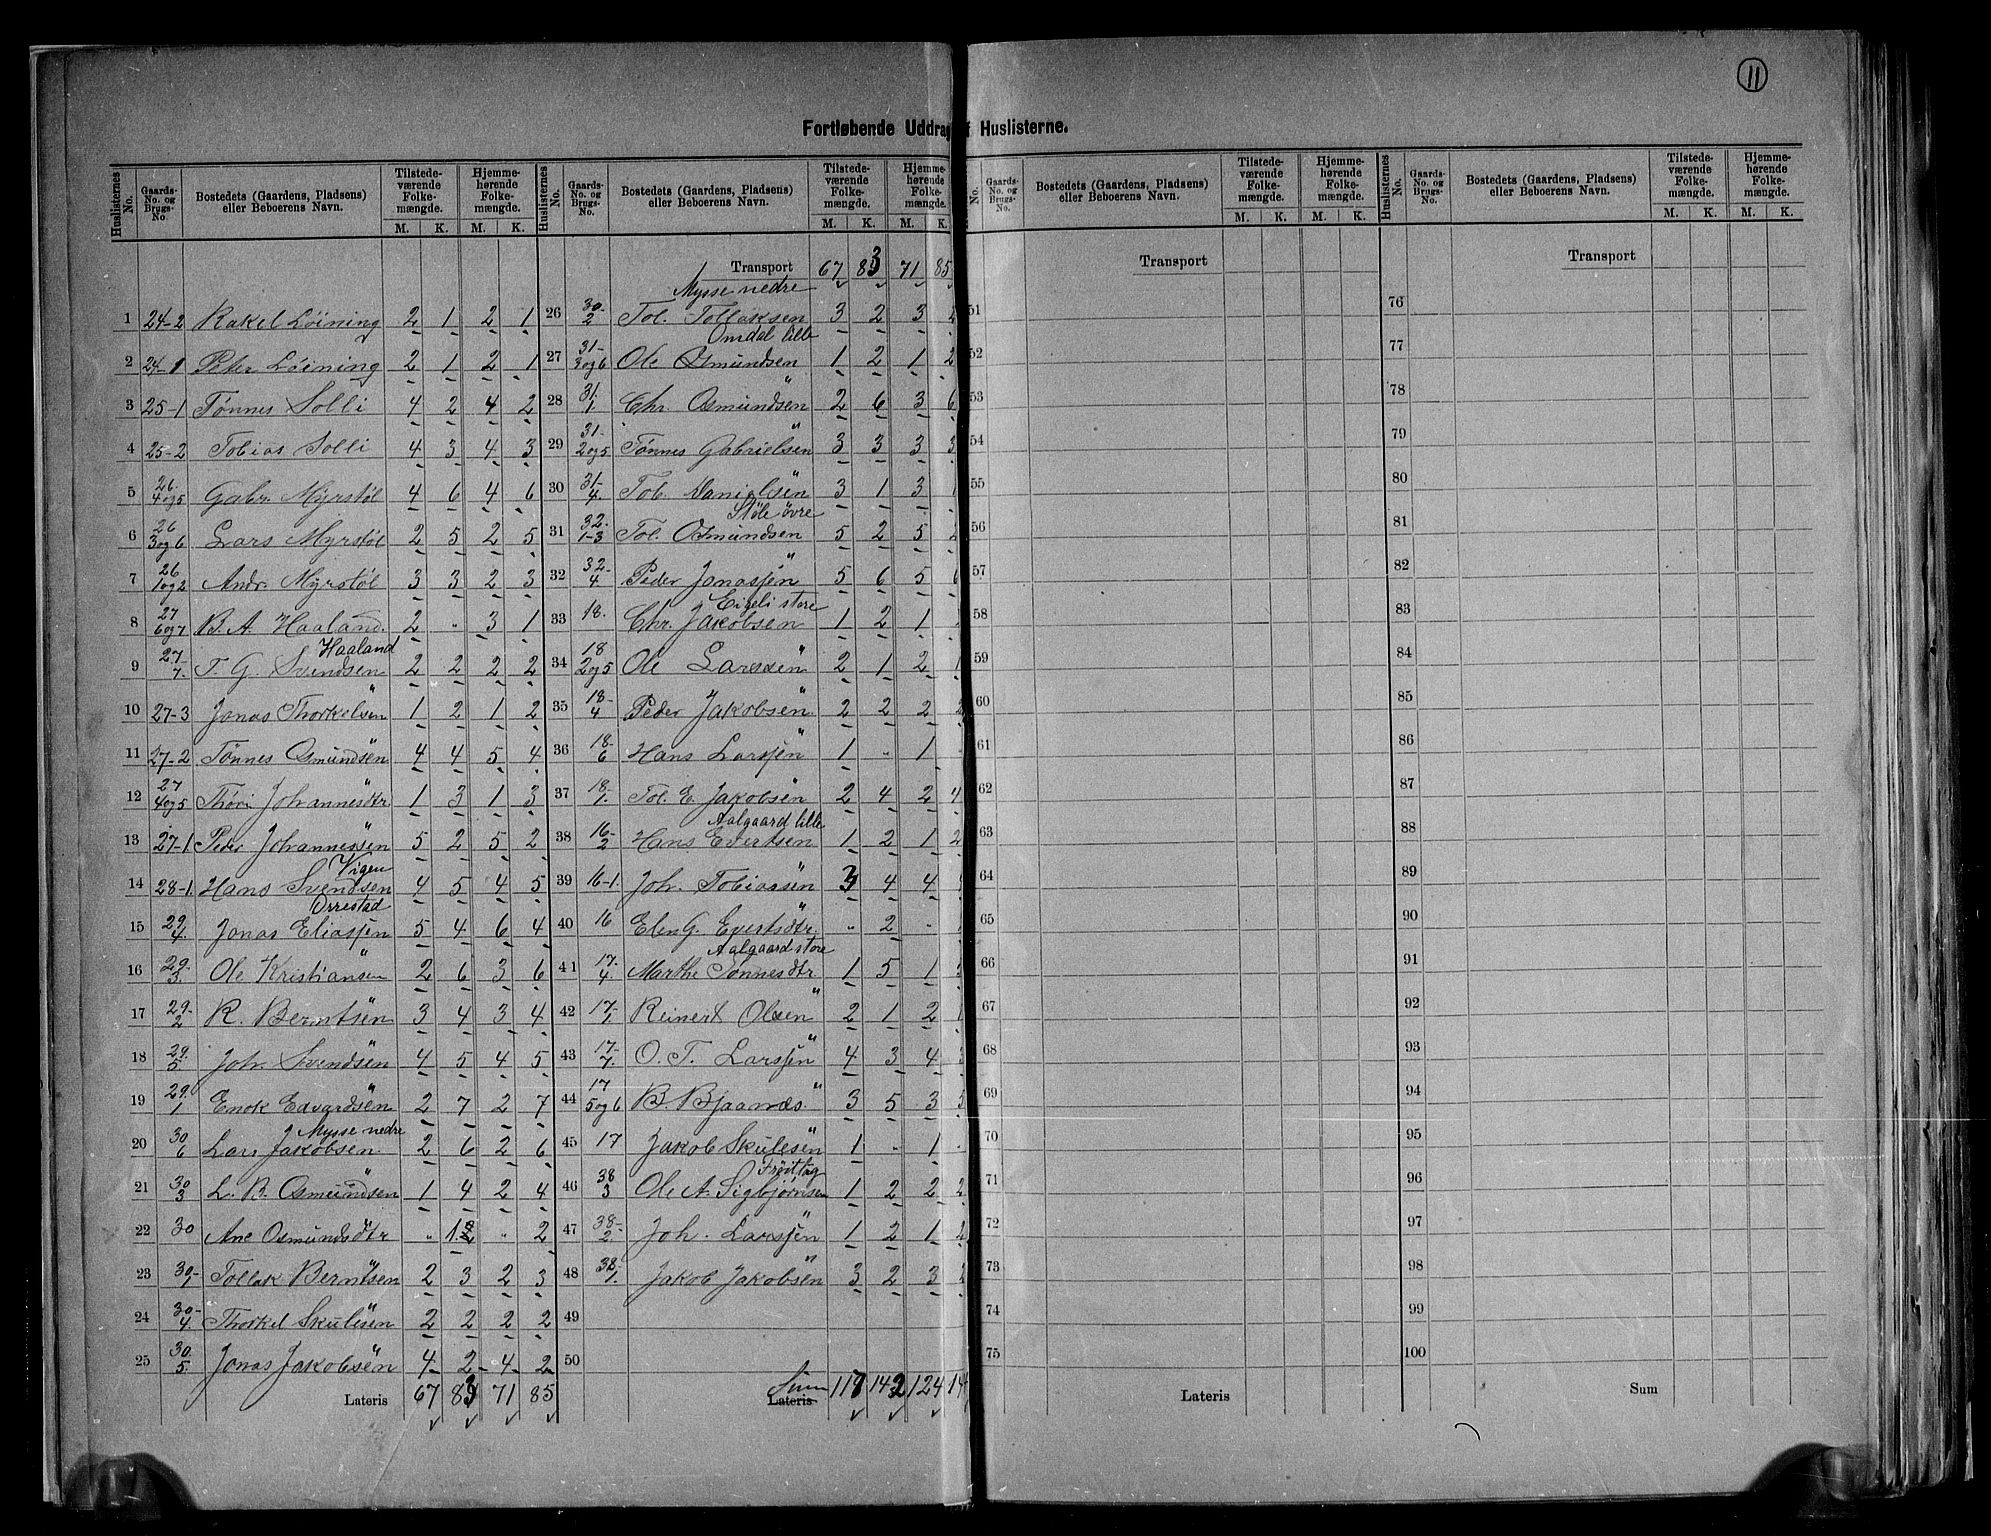 11
Fortløbende Uddrag Huslisterne.
Huslisternes No. Gaards-No. og Brugs-No. Bostedets (Gaardens, Pladsens) eller Beboerens Navn. Tilstedeværende Folkemængde. M. K. Hjemmehørende Folkemængde. M. K.
1 24-2 Rakel Löining 2 1 2 1
2 24-1 Peter Löining 2 1 2 1
3 25-1 Tønnes Solli 4 2 4 2
4 25-2 Tobias Solli 4 3 4 3
5 26. 4og5 Gabr. Myrstøl 4 6 4 6
6 26 3og6 Lars Myrstøl 2 5 2 5
7 26 1og2 Andr. Myrstøl 3 3 2 3
8 27 6og7 B. A. Haaland. 2 " 3 1
Haaland
9 27- 7. T. G. Svendsen 2 2 2 2
10 27-3 Jonas Thorkelsen " 1 2 1 2
11 27-2 Tønnes Osmundsen " 4 4 5 4
12 27 4og5 Thöri Johannesdtr " 1 3 1 3
13 27-1 Peder Johannessen " 5 2 5 2
Vigen
14 28-1. Hans Svendsen 4 5 4 5
Orrestad
15 29 4. Jonas Eliassen 5 4 6 4
16 29- 3. Ole Kristiansen " 2 6 3 6
17 29- 2 R. Berntsen " 3 4 3 4
18 29. 5. Joh. Svendsen " 4 5 4 5
19 29. 1 Enok Edvardsen " 2 7 2 7
Mysse nedre
20 30 6 Lars Jakobsen 2 6 2 6
21 30 3 L. B. Osmundsen " 1 4 2 4
22 30 Ane Osmundsdtr " " " 2
23 30- 1 Tollak Berntsen " 2 3 2 3
24 30- 4. Thorkel Skulesen " 2 2 2 2
25 30. 5. Jonas Jakobsen " 4 2 4 2
Lateris 67 83 71 85
Huslisternes No. Gaards-No. og Brugs-No. Bostedets (Gaardens, Pladsens) eller Beboerens Navn. Tilstedeværende Folkemængde. M. K. Hjemmehørende Folkemængde. M. K.
Transport 67 83 71 85
Mysse nedre
26 30- 2 Tol. Tollaksen 3 2 3
Omdal lille
27 31- 3og6 Ole Osmundsen 1 2 1 2
28 31. 1. Chr Osmundsen " 2 6 3 6
29 31- 2og5 Tønnes Gabrielsen " 3 3 3 3
30 31- 4. Tob. Danielsen " 3 1 3
Støle øvre
31 32- 1-3 Tol. Osmundsen 5 2 5 2
32 32- 4 Peder Jonassen " 5 6 5 6
Eigeli store
33 18. Chr. Jakobsen 1 2 1
34 18 2og5 Ole Larssen " 2 1 2 1
35 18- 4 Peder Jakobsen " 2 2 2 2
36 18- 6 Hans Larssen " 1 " 1
37 18- 1. Tol. E. Jakobsen " 2 4 2 4
Aalgaard lille
38 16- 2 Hans Evertsen 1 2 1 2
39 16-1. Joh. Tobiassen " 3 4 4
40 16 Elen G. Evertsdtr. " " 2 "
Aalgaard store
41 17- 4. Marthe Tønnesdtr 1 5 1
42 17- 1. Reinert Olsen " 2 1 2 1
43 17- 7. O. T. Larssen " 4 3 4 3
44 17 5og6 B. Bjaanæs " 3 5 3 5
45 17 Jakob Skulesen " 1 " 1
Frøitlag
46 38 3 Ole A. Sigbjørnsen 1 2 2 2
47 38- 2. Joh. Larssen " 1 2 1 2
48 38- 1. Jakob Jakobsen " 3 2 3 2
49
50
Sum Lateris 117 142 124
No. Gaards-No. og Brugs-No. Bostedets (Gaardens, Pladsens) eller Beboerens Navn. Tilstedeværende Folkemængde. M. K. Hjemmehørende Folkemængde. M. K.
Transport
51
52
53
54
55
56
57
58
59
60
61
62
63
64
65
66
67
68
69
70
71
72
73
74
75
Lateris
Huslisternes No. Gaards-No. og Brugs-No. Bostedets (Gaardens, Pladsens) eller Beboerens Navn. Tilstedeværende Folkemængde. M. K. Hjemmehørende Folkemængde. M. K.
Transport
76
77
78
79
80
81
82
83
84
85
86
87
88
89
90
91
92
93
94
95
96
97
98
99
100
Sum